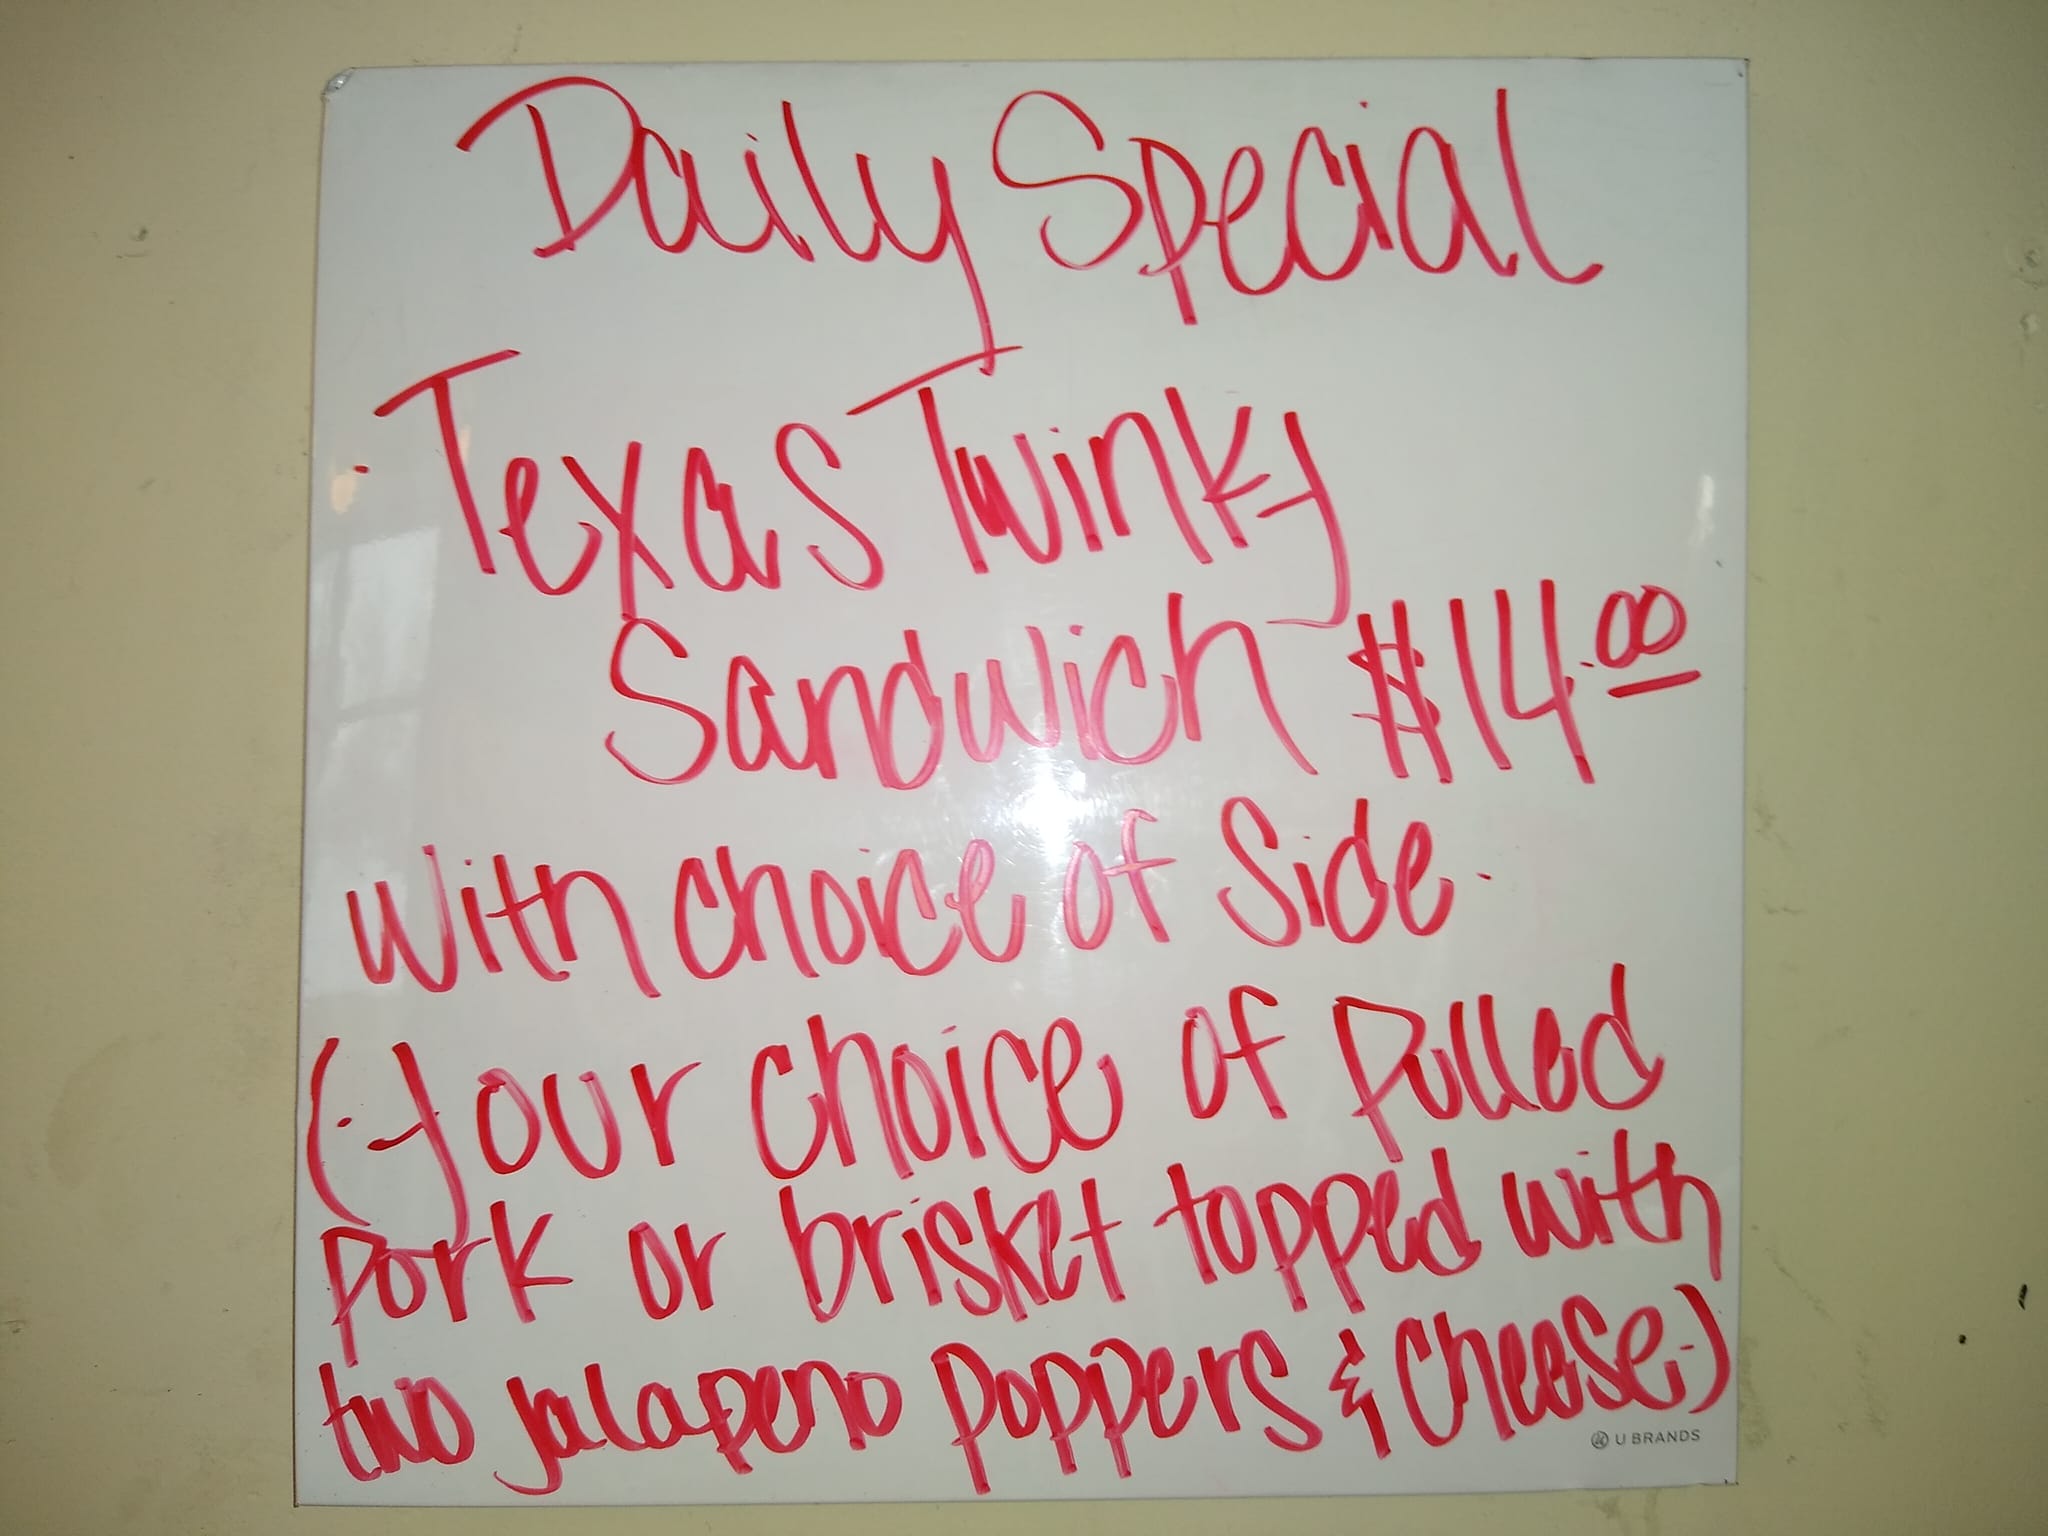 Daily Special
· Texas Twinky
Sandwich $14.00
With choice of Side.
(·your choice of pulled
pork or brisket topped with
two jalapeno poppers & cheese.)
U BRANDS